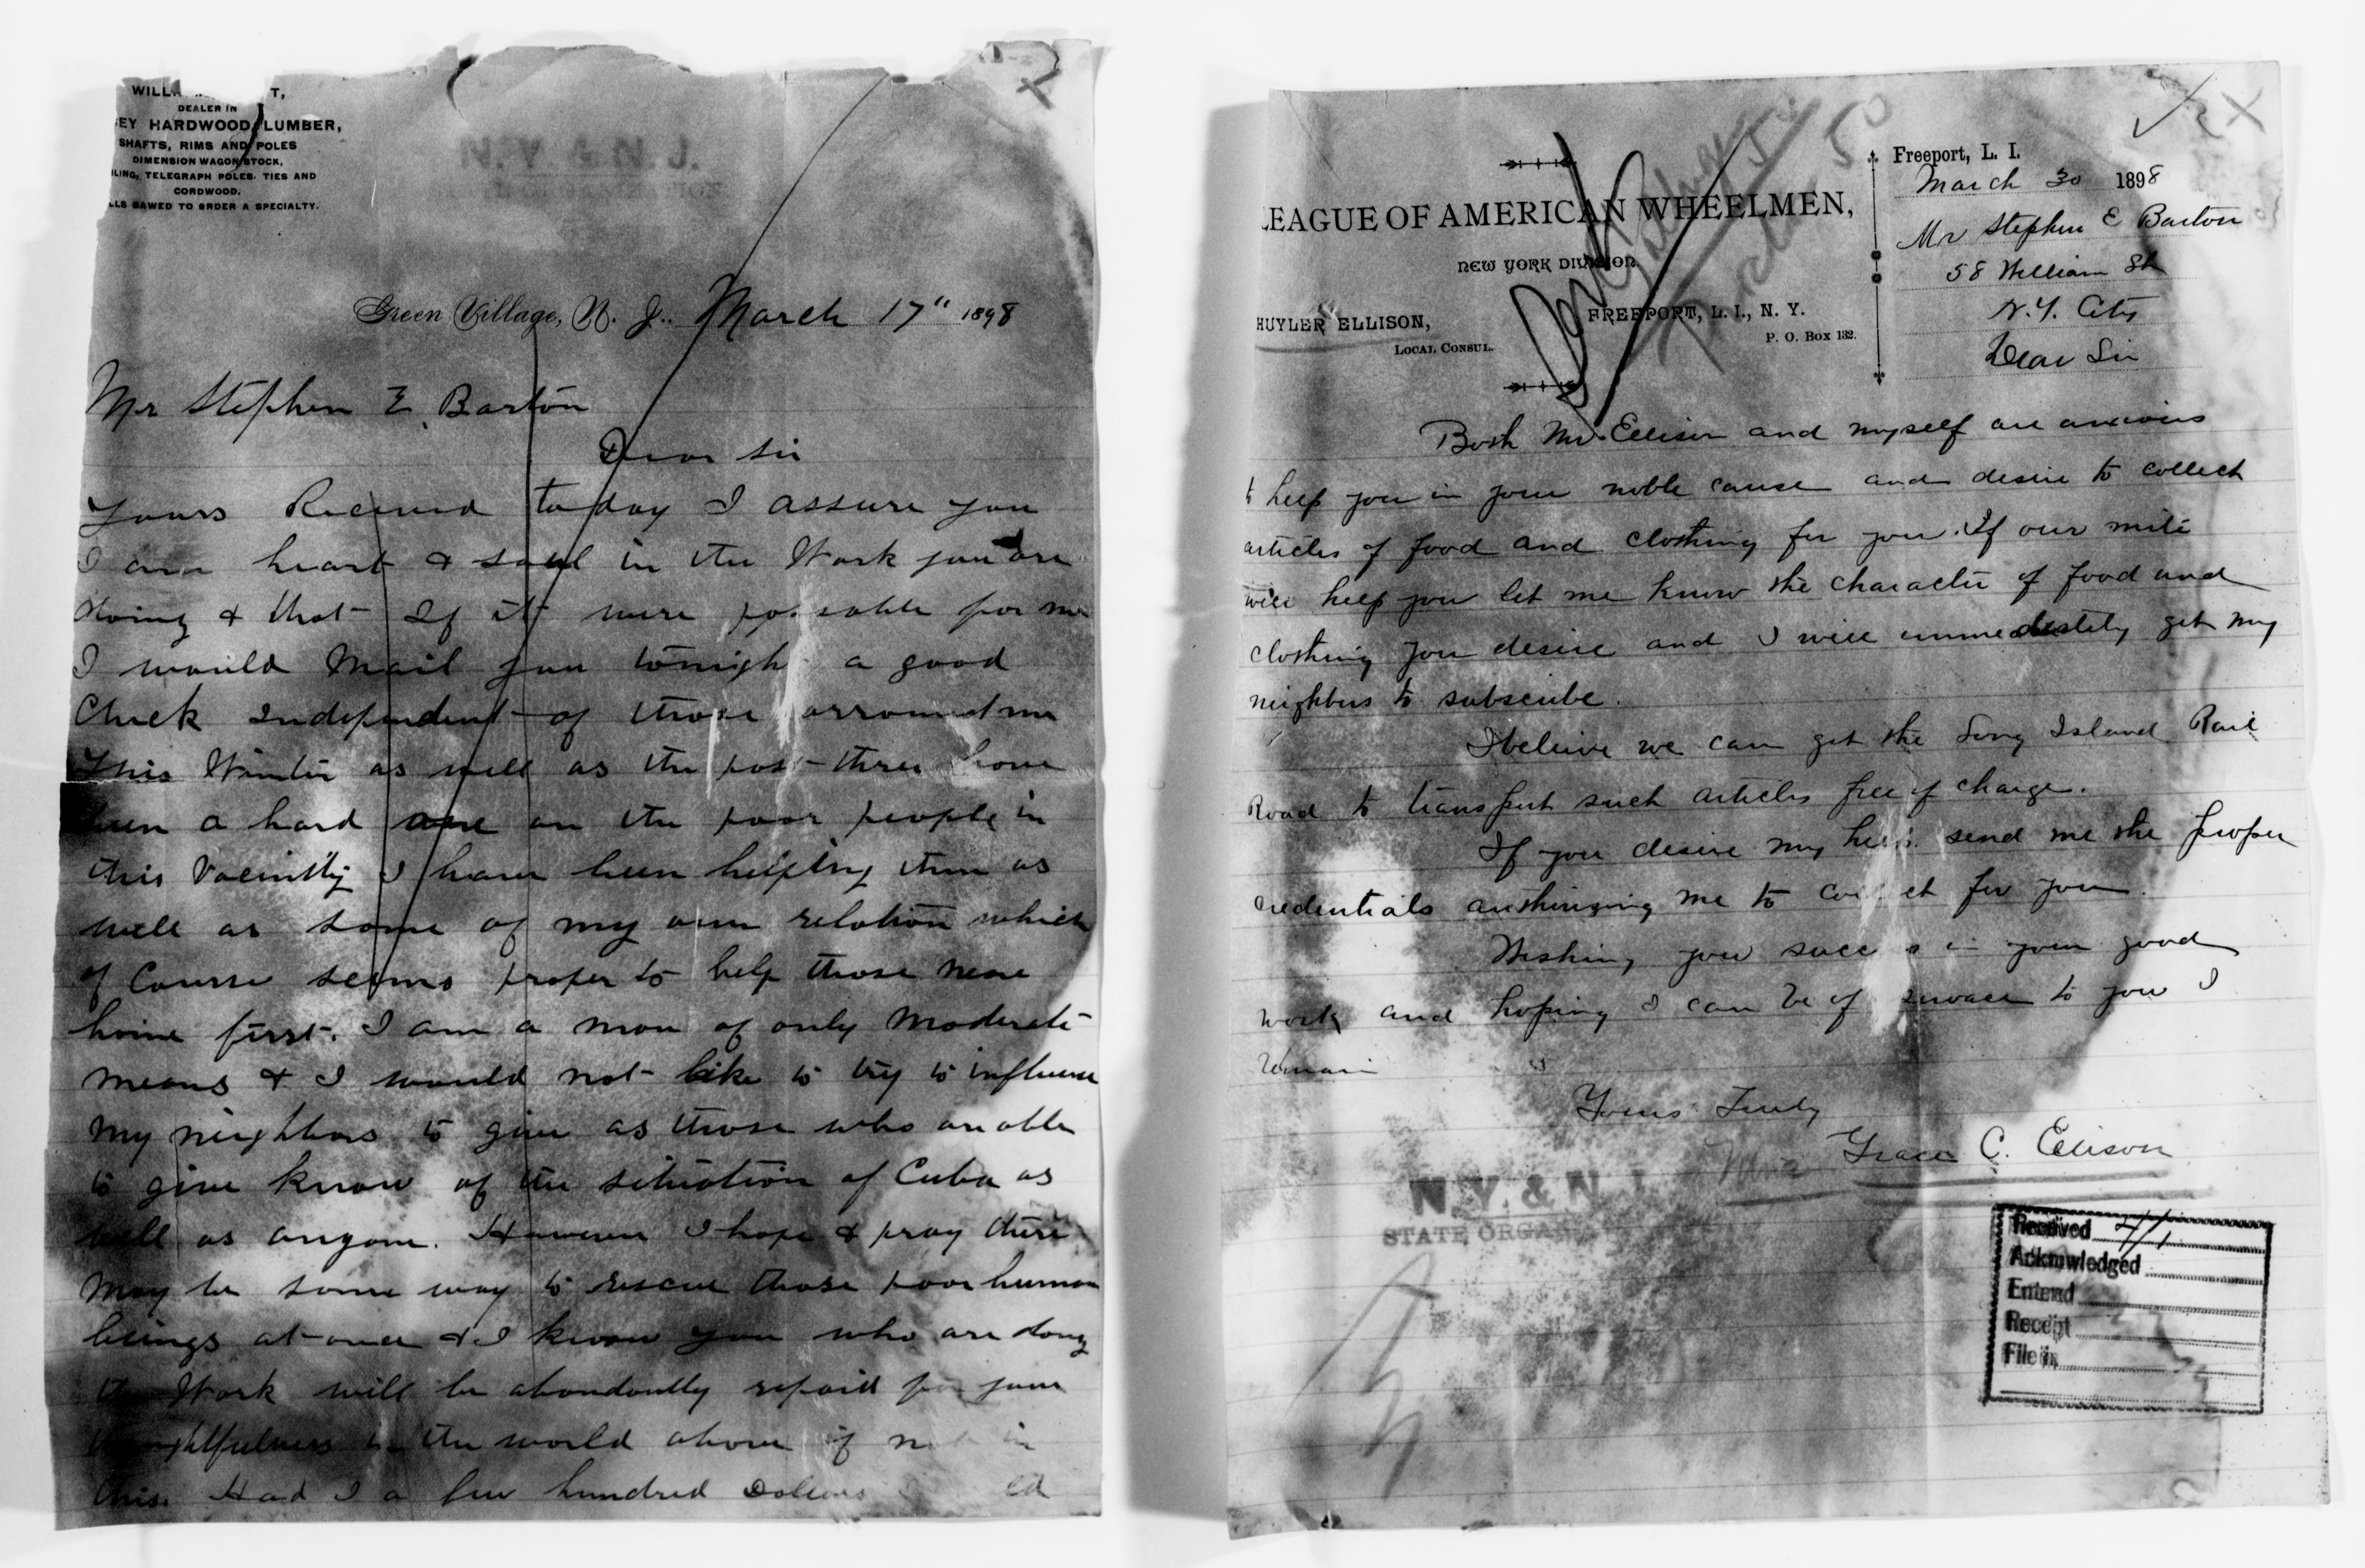 DEALER IN
EY HARDWOOD LUMBER,
SHAFTS, RIMS AND POLES
DIMENSION WAGON STOCK,
LING, TELEGRAPH POLES. TIES AND
CORDWOOD.
LLS SAWED TO ORDER A SPECIALTY.
N. Y. & N. J.
Green Village, N. J. March 17" 1898
Mr Stephen E. Barton
Dear Sir
Yours Recieved today I assure you
I am heart & soul in the Work you are
doing & that If it were possable for me
I would Mail you tonight a good
Check Independent of those arround me
This Winter as well as the past three have
been a hard one on the poor people in
this Vacinity I have been helping them as
well as some of my own relation which
of Course seems proper to help those near
home first. I am a man of only Moderate
means & I would not like to try to influence
My neighbors to give as those who are able
to give know of the situation of Cuba as
well as anyone. However I hope & pray there
May be some way to rescue those poor human
beings at once & I know you who are doing
the Work will be abondantly repaid for your
thoughtfulness in the world above if not in
this. Had I a few hundred Dollars
LEAGUE OF AMERICAN WHEELMEN,
NEW YORK DIVISION.
HUYLER ELLISON,
LOCAL CONSUL.
FREEPORT, L. I., N. Y.
P. O. Box 132.
Freeport, L. I.
March 30 1898
Mr Stephen E Barton
58 William St
N.Y. City
Dear Sir
Both Mr. Ellison and myself are anxious
to help you in your noble cause and desire to collect
articles of food and clothing for you. If our mite
will help you let me know the character of food and
clothing you desire and I will immediately get my
neighbors to subscribe.
I believe we can get the Long Island Rail
Road to transport such articles free of charge.
If you desire my help send me the proper
credentials authorizing me to collect for you.
Wishing you success in your good
work and hoping I can be of service to you I
remain
Yours Truly
Mrs Grace C. Ellison
N. Y. & N. J.
STATE ORGA
Received 4/1
Acknowledged
Entered
Receipt
File in